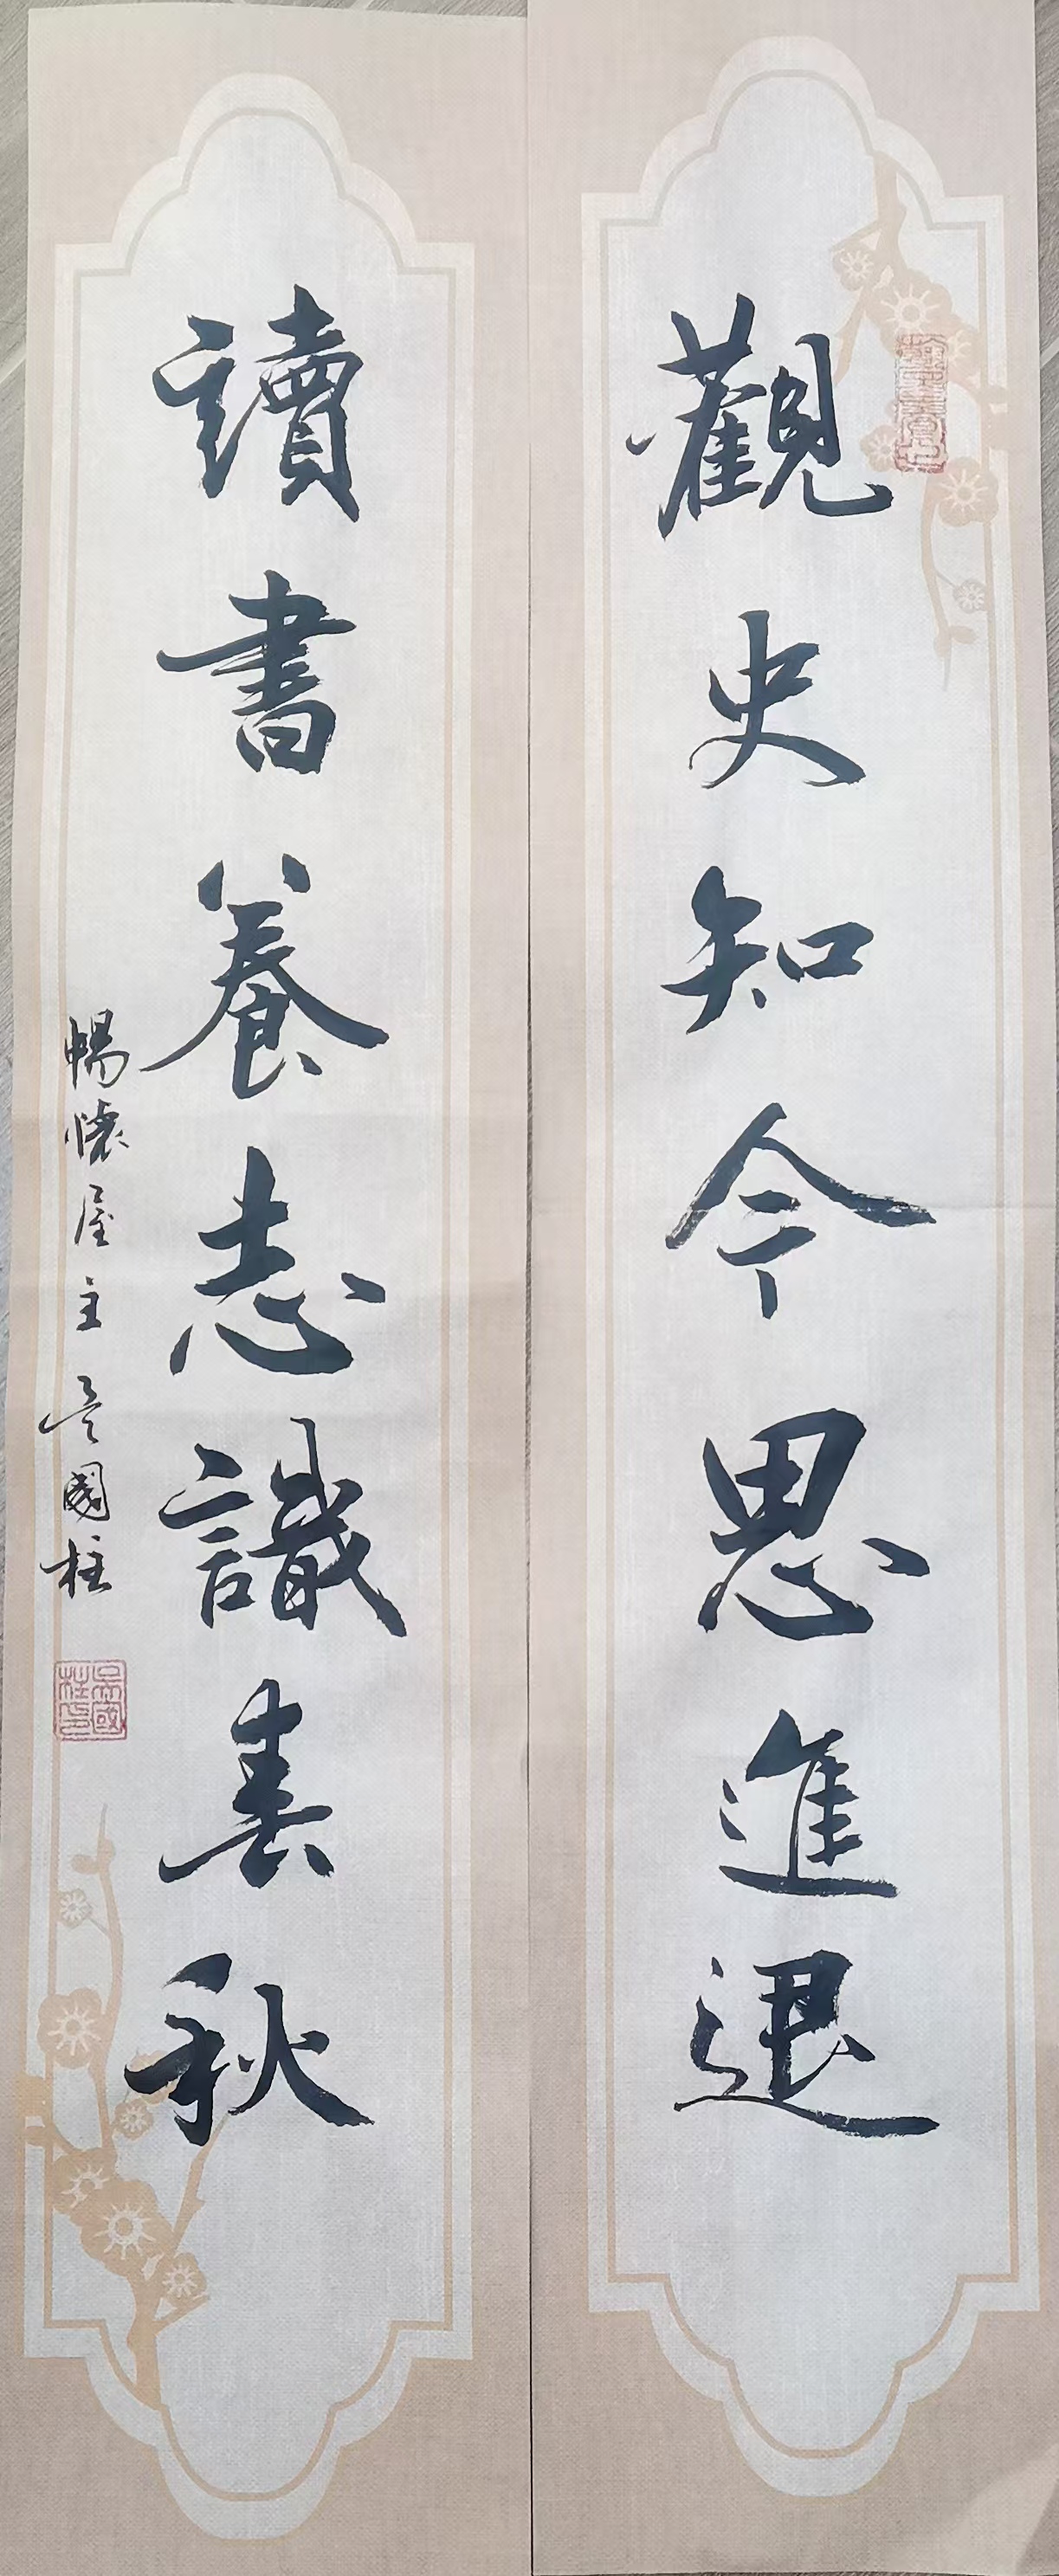 觀史知今思進退
讀書養志識春秋
暢懷屋主吳國柱
吳國柱印